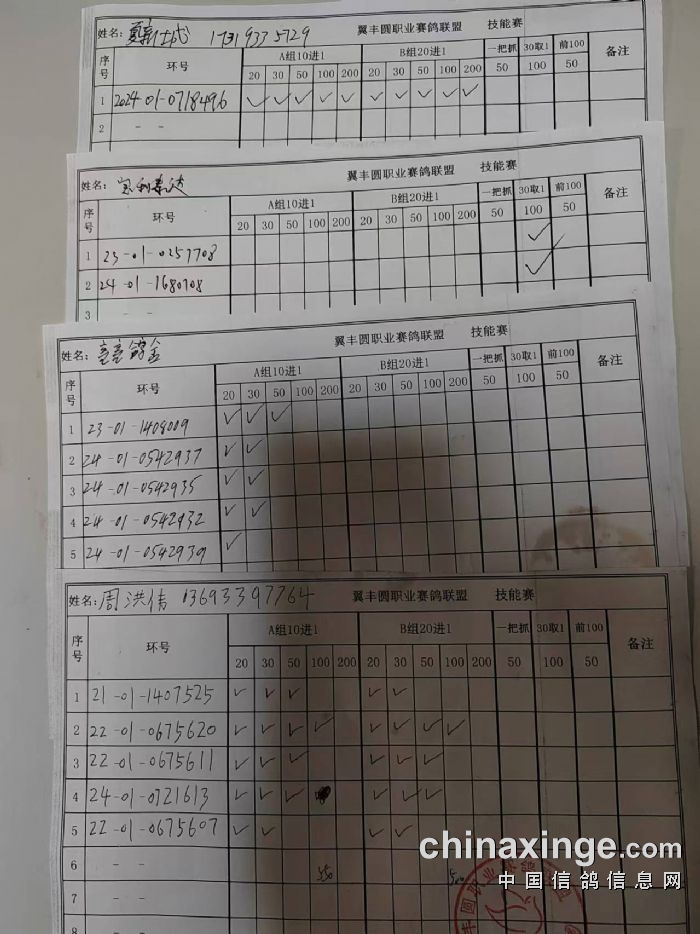 姓名: 17319335729 翼丰圆职业赛鸽联盟 技能赛
序号 环号 A组10进1 B组20进1 一把抓 30取1 前100 备注
20 30 50 100 200 20 30 50 100 200 50 100 50
1 2024-01-0718496 ✓ ✓ ✓ ✓ ✓ ✓ ✓ ✓ ✓ ✓
2 - -
姓名: 翼丰圆职业赛鸽联盟 技能赛
序号 环号 A组10进1 B组20进1 一把抓 30取1 前100 备注
20 30 50 100 200 20 30 50 100 200 50 100 50
1 23-01-0257708 ✓
2 24-01-1680708 ✓
3
姓名: 翼丰圆职业赛鸽联盟 技能赛
序号 环号 A组10进1 B组20进1 一把抓 30取1 前100 备注
20 30 50 100 200 20 30 50 100 200 50 100 50
1 23-01-1408009 ✓ ✓ ✓
2 24-01-0542937 ✓ ✓
3 24-01-0542935 ✓ ✓
4 24-01-0542932 ✓ ✓
5 24-01-0542939 ✓
姓名: 周洪伟 13693397764 翼丰圆职业赛鸽联盟 技能赛
序号 环号 A组10进1 B组20进1 一把抓 30取1 前100 备注
20 30 50 100 200 20 30 50 100 200 50 100 50
1 21-01-1407525 ✓ ✓ ✓ ✓ ✓
2 22-01-0675620 ✓ ✓ ✓ ✓ ✓ ✓ ✓ ✓
3 22-01-0675611 ✓ ✓ ✓ ✓ ✓ ✓
4 24-01-0721613 ✓ ✓ ✓ ✓ ✓ ✓
5 22-01-0675607 ✓ ✓ ✓ ✓
6 - - 550
7 - -
8
chinaxinge.com
中国信鸽信息网